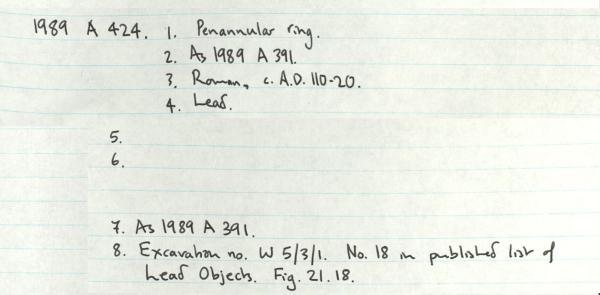 1989 A 424. 1. Penannular ring.
2. As 1989 A 391.
3. Roman, c. A.D. 110-20.
4. Lead.
5.
6.
7. As 1989 A 391.
8. Excavation no. W 5/3/1. No. 18 in published list of
Lead Objects. Fig. 21.18.